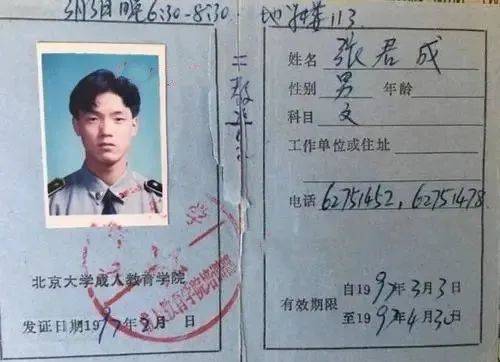 3月3日晚6:30-8:30.
北京大学成人教育学院
发证日期1997年3月 日
地 113
姓名 张君成
性别 男 年龄
科目 文
工作单位或住址
电话 62751452, 62751478
有效期限
自1997年3月3日
至1997年4月30日